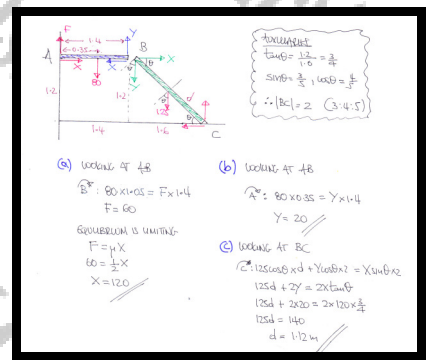 F
1.4
0.35
Y
A
X
X
B
X
θ
80
Y
1.2
1.2
d
125
θ
θ
1.4
1.6
C
AUXILIARIES
tanθ = 1.2/1.6 = 3/4
sinθ = 3/5, cosθ = 4/5
∴ |BC| = 2 (3:4:5)
(a) LOOKING AT AB
B: 80×1.05 = F×1.4
F = 60
EQUILIBRIUM IS LIMITING
F = μX
60 = 1/2 X
X = 120
(b) LOOKING AT AB
A: 80×0.35 = Y×1.4
Y = 20
(c) LOOKING AT BC
C: 125cosθ×d + Ycosθ×2 = Xsinθ×2
125d + 2Y = 2Xtanθ
125d + 2×20 = 2×120×3/4
125d = 140
d = 1.12 m